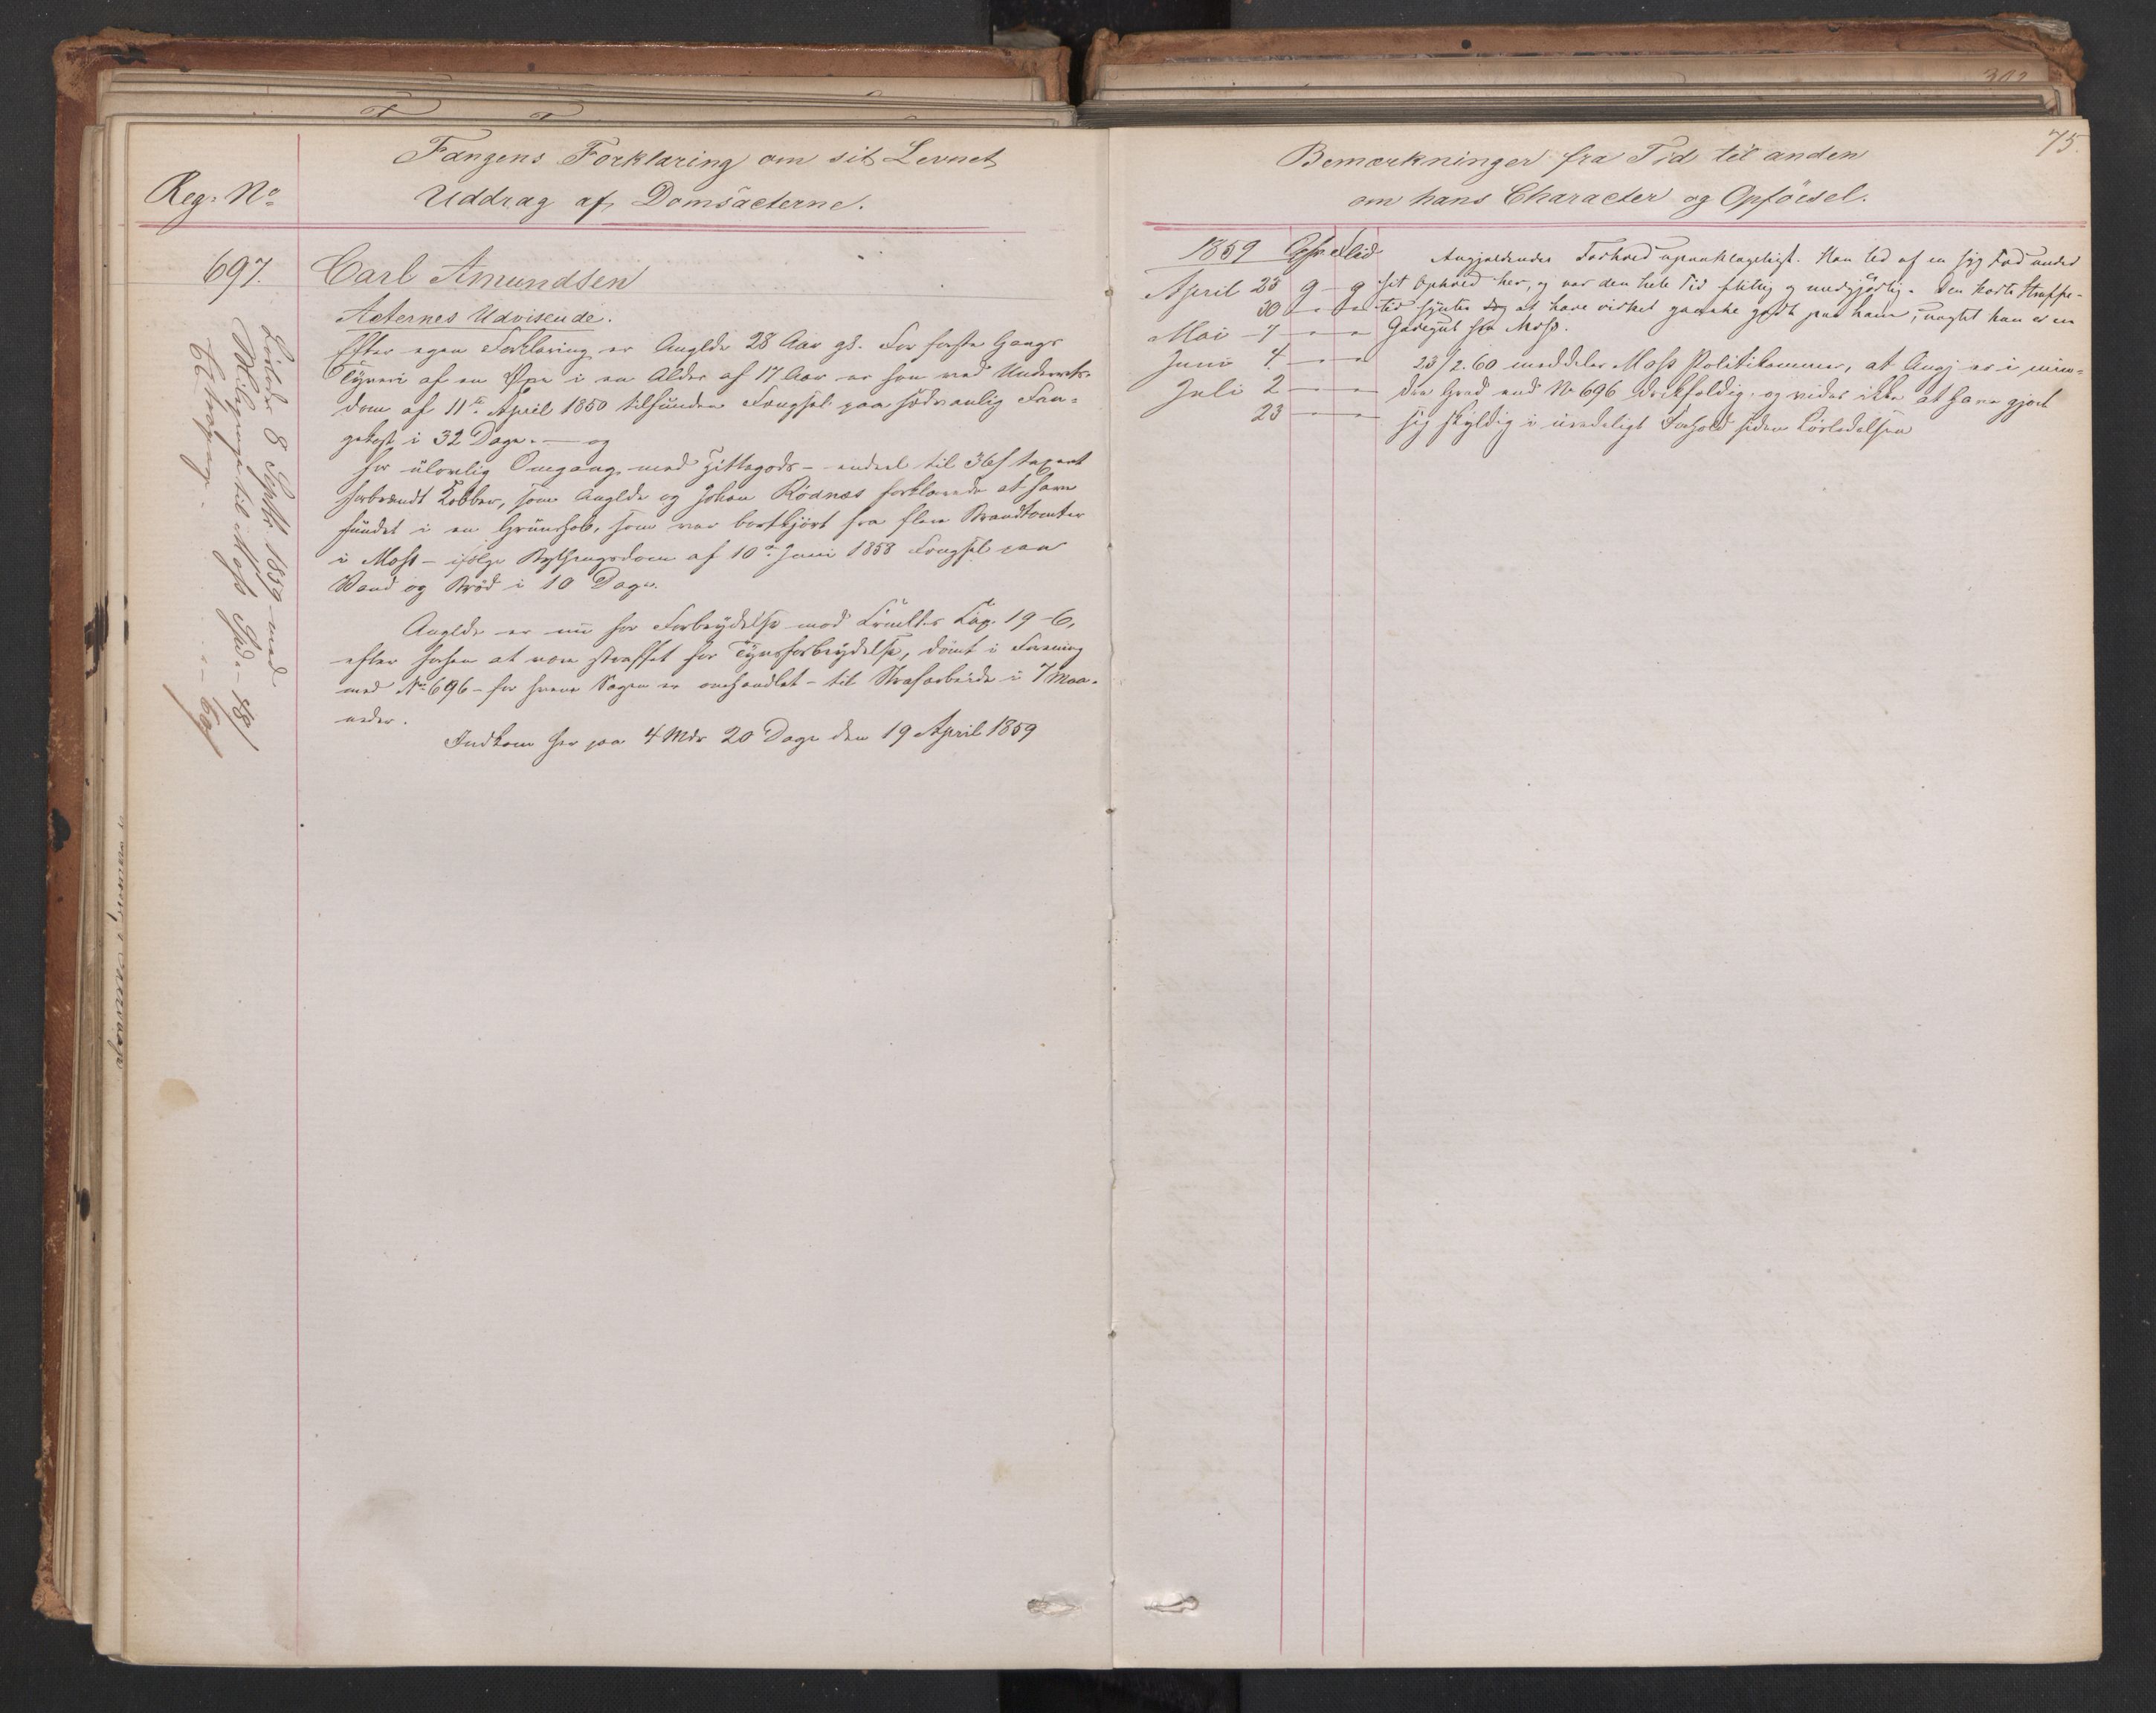 Fangens Forklaring om sit Levnet
Reg. No
Uddrag af Domsacterne.
697.
Carl Amundsen
Acternes Udvisende.
Efter egen Forklaring er Anglde 28 Aar gl. For første Gangs
Tyveri af en Øxe i en Alder af 17 Aar er han ved Underrets-
dom af 11te April 1850 tilfunden Fængsel paa sædvanlig Fan-
gekost i 32 Dage. — og
for ulovlig Omgang med Hittegods — endeel til 36 s taxeret
forbrændt Kobber, som Anglde og Johan Rødnæs forklarede at have
fundet i en Gruushob, som var bortkjørt fra flere Brandtomter
i Moss — ifølge Bythingsdom af 10de Juni 1858 Fængsel paa
Vand og Brød i 10 Dage.
Anglde er nu for Forbrydelse mod Crimll. Cap. 19-6,
efter forhen at være straffet for Tyvsforbrydelse, dømt i Forening
med No 696 — for hvem Sagen er omhandlet — til Strafarbeide i 7 Maa-
neder.
Indkom her paa 4 Mdr 20 Dage den 19 April 1859
Løsladt 8 Septbr. 1859 med
Billigpenge til Moss Spd. - 48 s
60 s
75.
Bemærkninger fra Tid til anden
om hans Character og Opførsel.
1859 Opfør. Flid
April 23 9 - 9
30 — " — "
Mai - 7 — " — "
Juni 4 — " — "
Juli 2 — " — "
23 — " — "
Angjældendes Forhold upaaklageligt. Han led af en syg Fod under
sit Ophold her, og var den hele Tid flittig og medgjørlig. Den korte Straffe-
tid syntes dog at have virket ganske godt paa ham, uagtet han er en
Gadegut fra Moss.
23/2.60 meddeler Moss Politikammer, at Angj er i min-
dre Grad end No 696 drikfældig, og vides ikke at have gjort
sig skyldig i uredeligt Forhold siden Løsladelsen